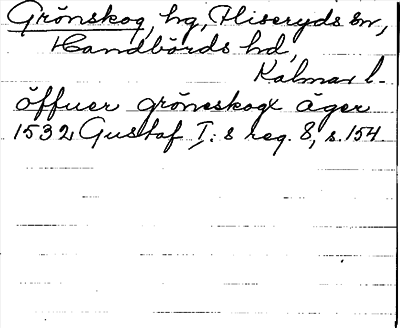 Grönskog, hg, Hliseryds sn,
Handbörds hd,
Kalmar l.
öffuer gröneskogx äger
1532 Gustaf I:s reg. 8, s. 154